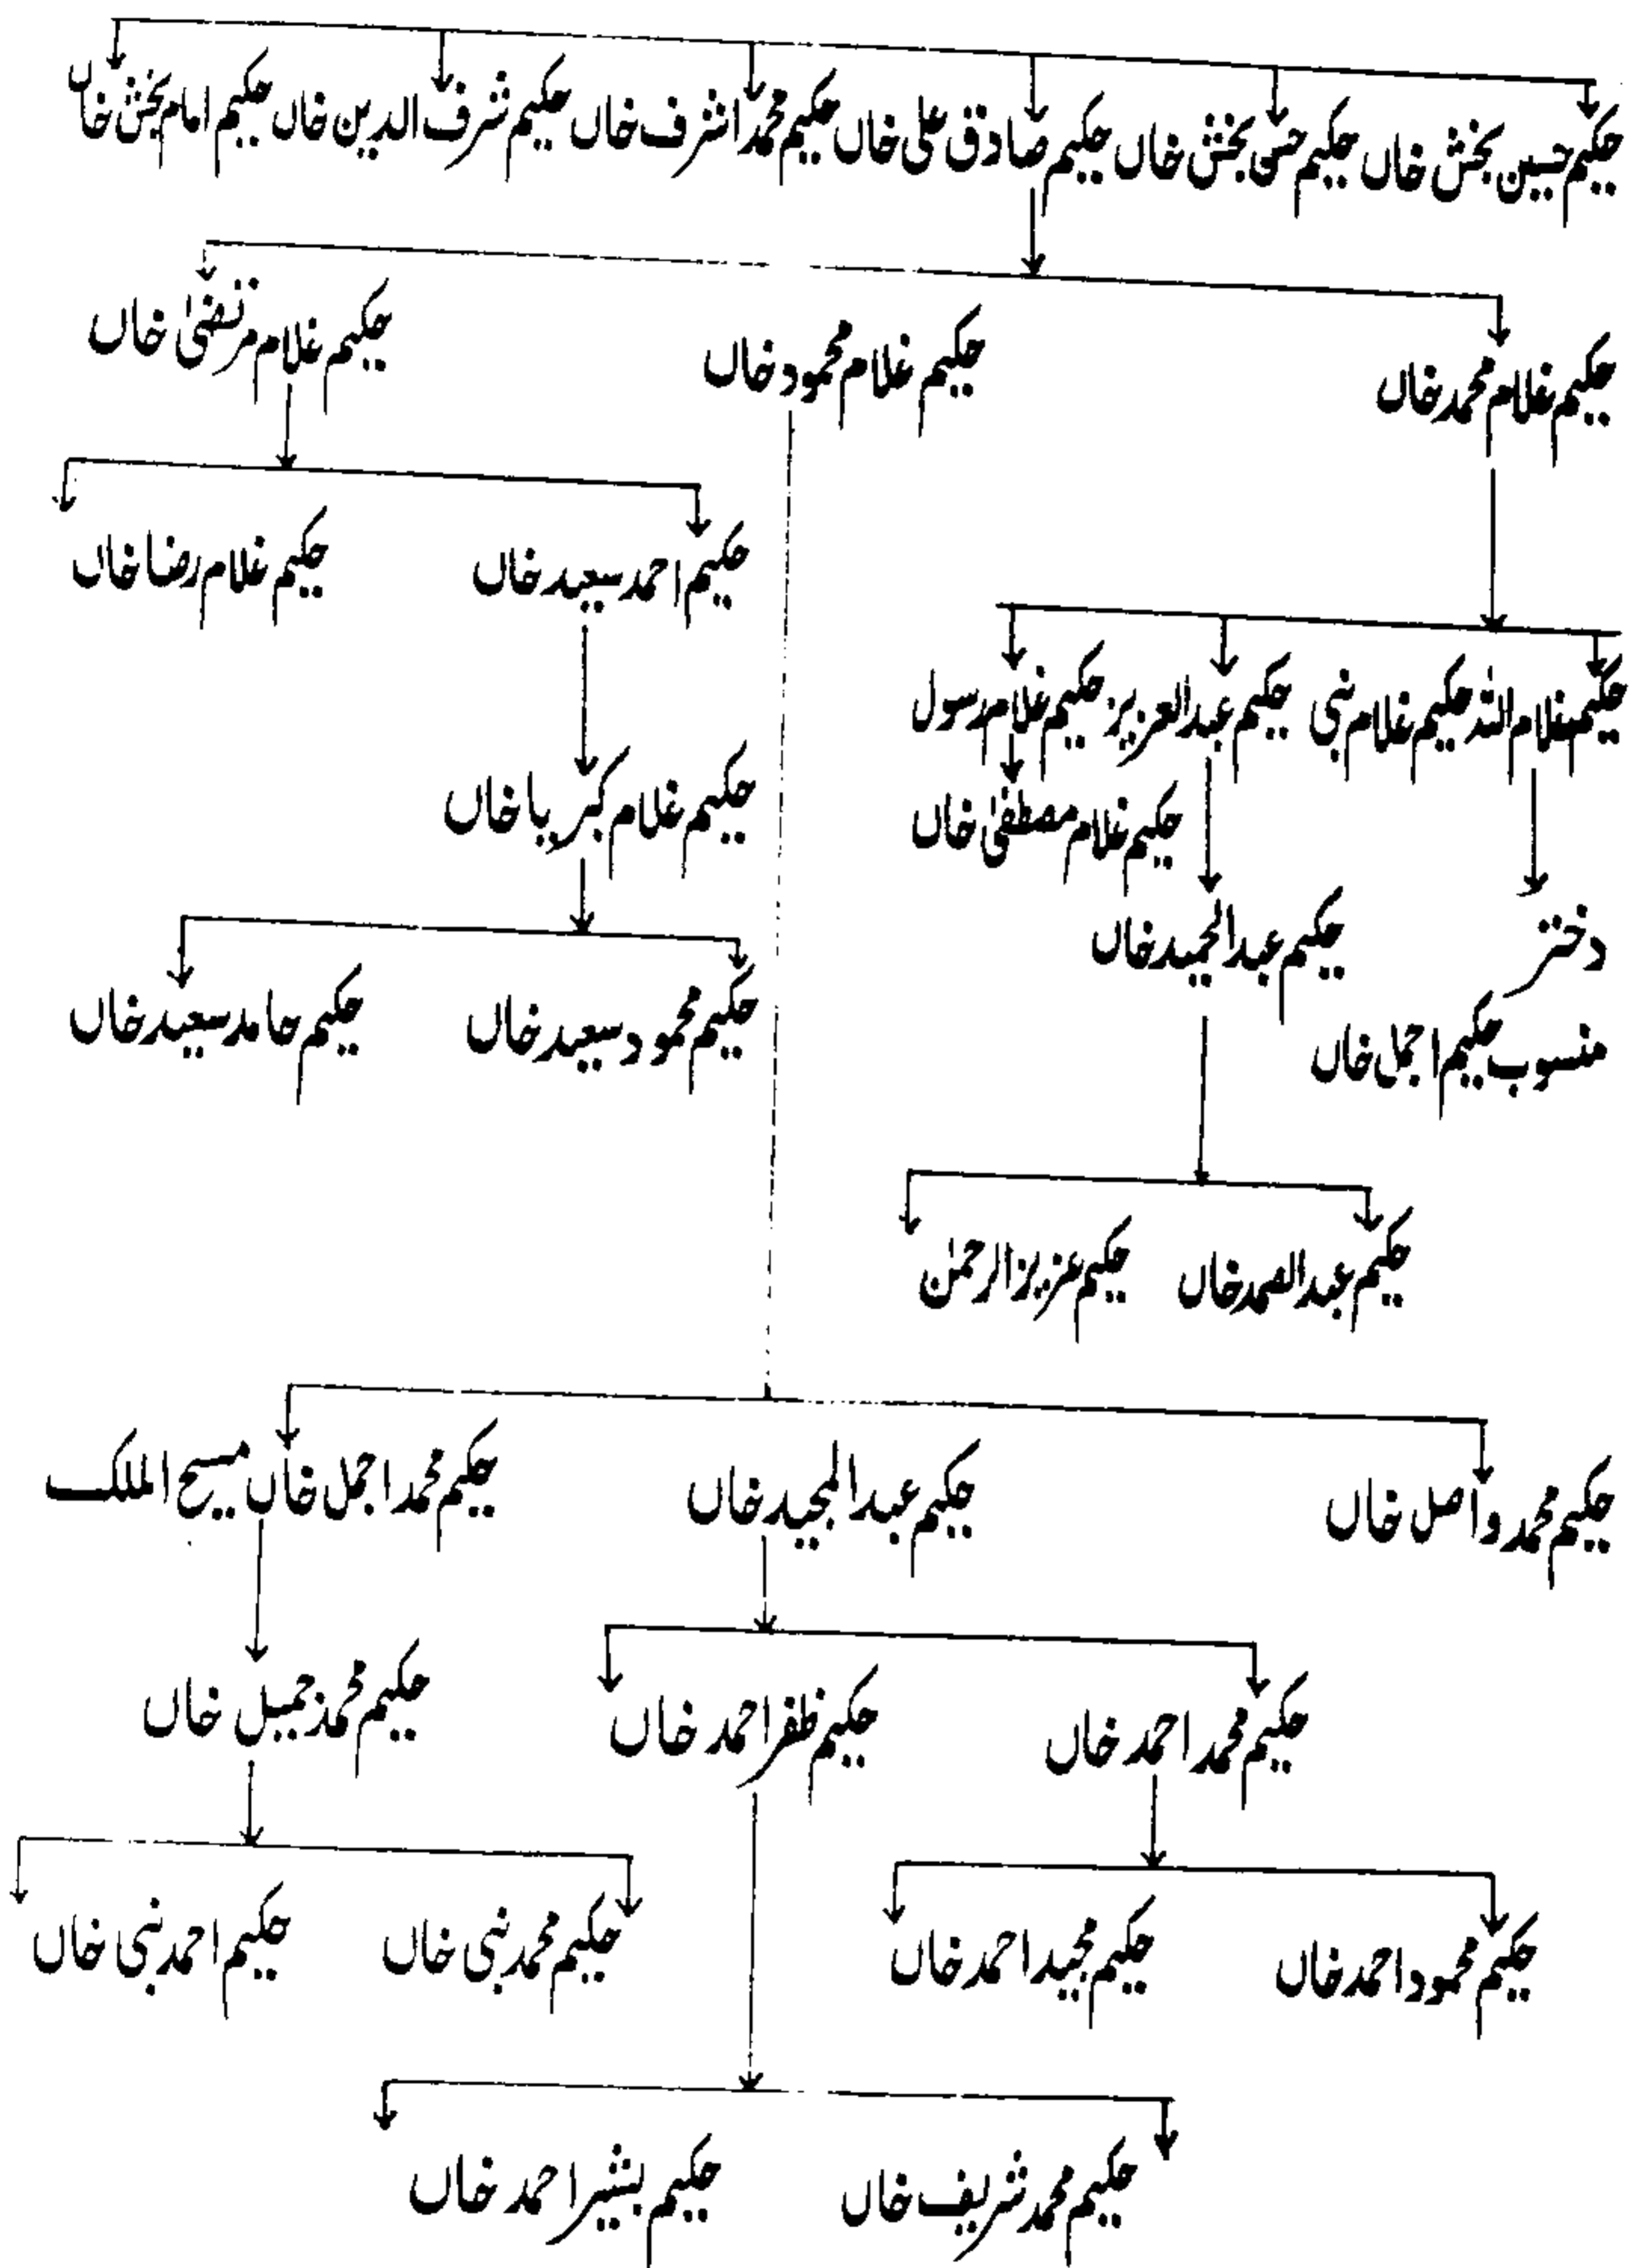 حکیم حسین بخش خاں حکیم حسن بخش خاں حکیم صادق علی خاں حکیم محمد اشرف خاں حکیم شرف الدین خاں حکیم امام بخش خاں
حکیم غلام محمد خاں حکیم غلام محمود خاں حکیم غلام مرتضیٰ خاں
حکیم احمد سعید خاں حکیم غلام رضا خاں
حکیم غلام اللہ حکیم غلام نبی حکیم عبدالعزیز حکیم غلام رسول
حکیم غلام مصطفیٰ خاں حکیم غلام کبریا خاں
دختر حکیم عبدالحمید خاں
منسوب حکیم اجمل خاں حکیم محمود سعید خاں حکیم حامد سعید خاں
حکیم عبدالصمد خاں حکیم عزیزالرحمٰن
حکیم محمد واصل خاں حکیم عبدالمجید خاں حکیم محمد اجمل خاں مسیح الملک
حکیم محمد احمد خاں حکیم ظفر احمد خاں حکیم محمد جمیل خاں
حکیم محمود احمد خاں حکیم مجید احمد خاں حکیم محمد نبی خاں حکیم احمد نبی خاں
حکیم محمد شریف خاں حکیم بشیر احمد خاں